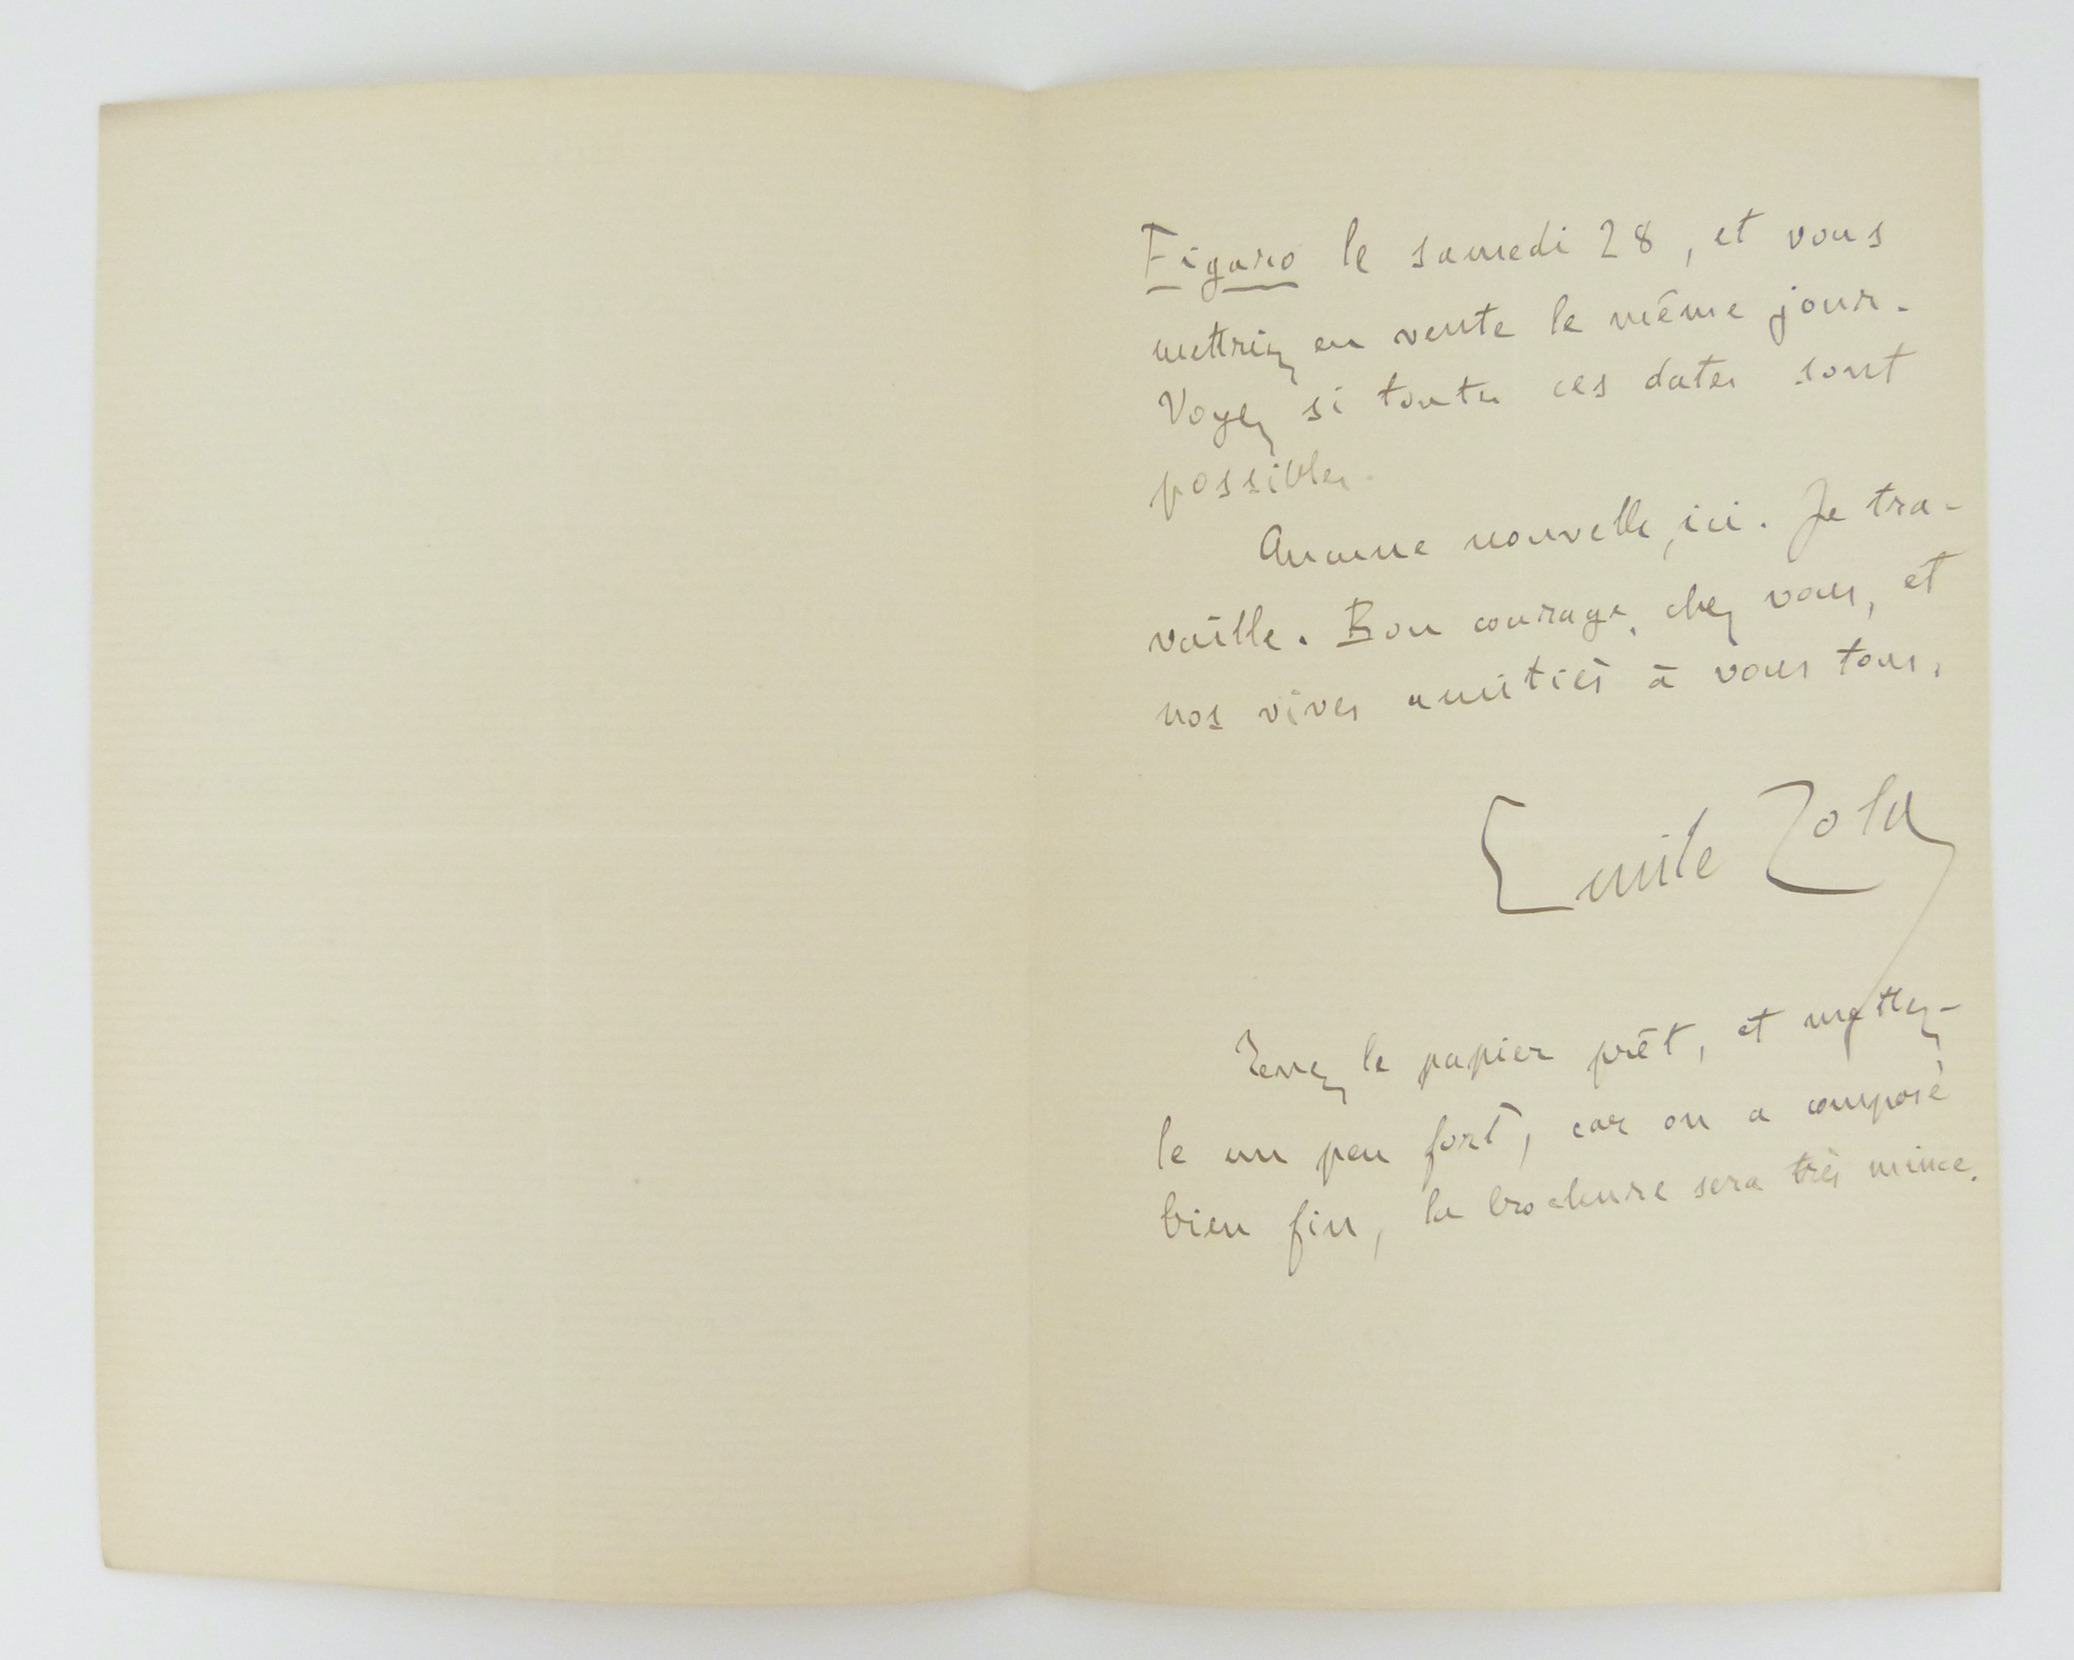 Figaro le samedi 28, et vous
mettriez en vente le même jour.
Voyez si toutes ces dates sont
possibles.
Aucune nouvelle, ici. Je tra-
vaille. Bon courage, chez vous, et
nos vives amitiés à vous tous.
Emile Zola
Tenez le papier prêt, et mettez-
le un peu fort, car on a composé
bien fin, la brochure sera très mince.